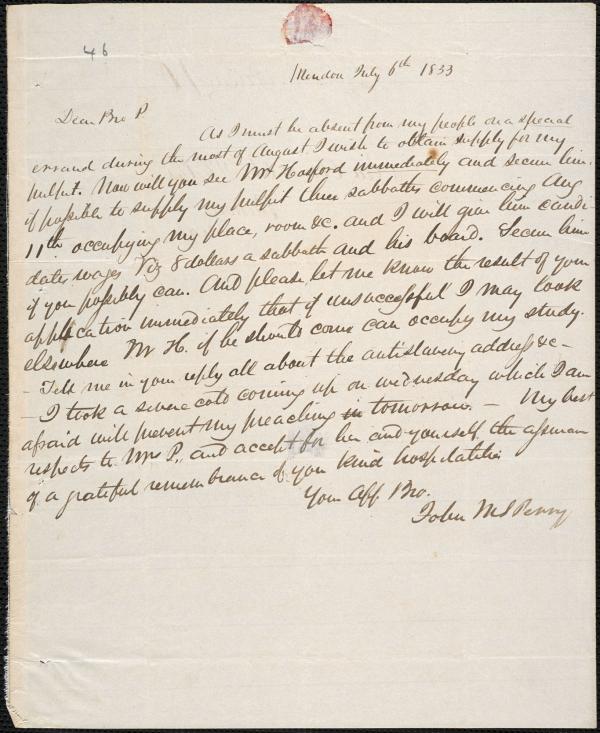 46
Mendon July 6th 1833
Dear Bro P.
As I must be absent from my people on a special
errand during the most of August I wish to obtain supply for my
pulpit. Now will you see Mr Hosford immediately and secure him
if possible to supply my pulpit three sabbaths commencing Aug
11th occupying my place, room &c. and I will give him candi
dates wages Viz 8 dollars a sabbath and his board. Secure him
if you possibly can. And please let me know the result of your
application immediately that if unsuccessful I may look
elsewhere Mr H. if he should come can occupy my study.
- Tell me in your reply all about the antislavery address &c -
- I took a severe cold coming up on wednesday which I am
afraid will prevent my preaching in tomorrow. - My best
respects to Mrs P. and accept for her and yourself the assurance
of a grateful remembrance of your kind hospitalities
Your Aff Bro.
John M S Perry